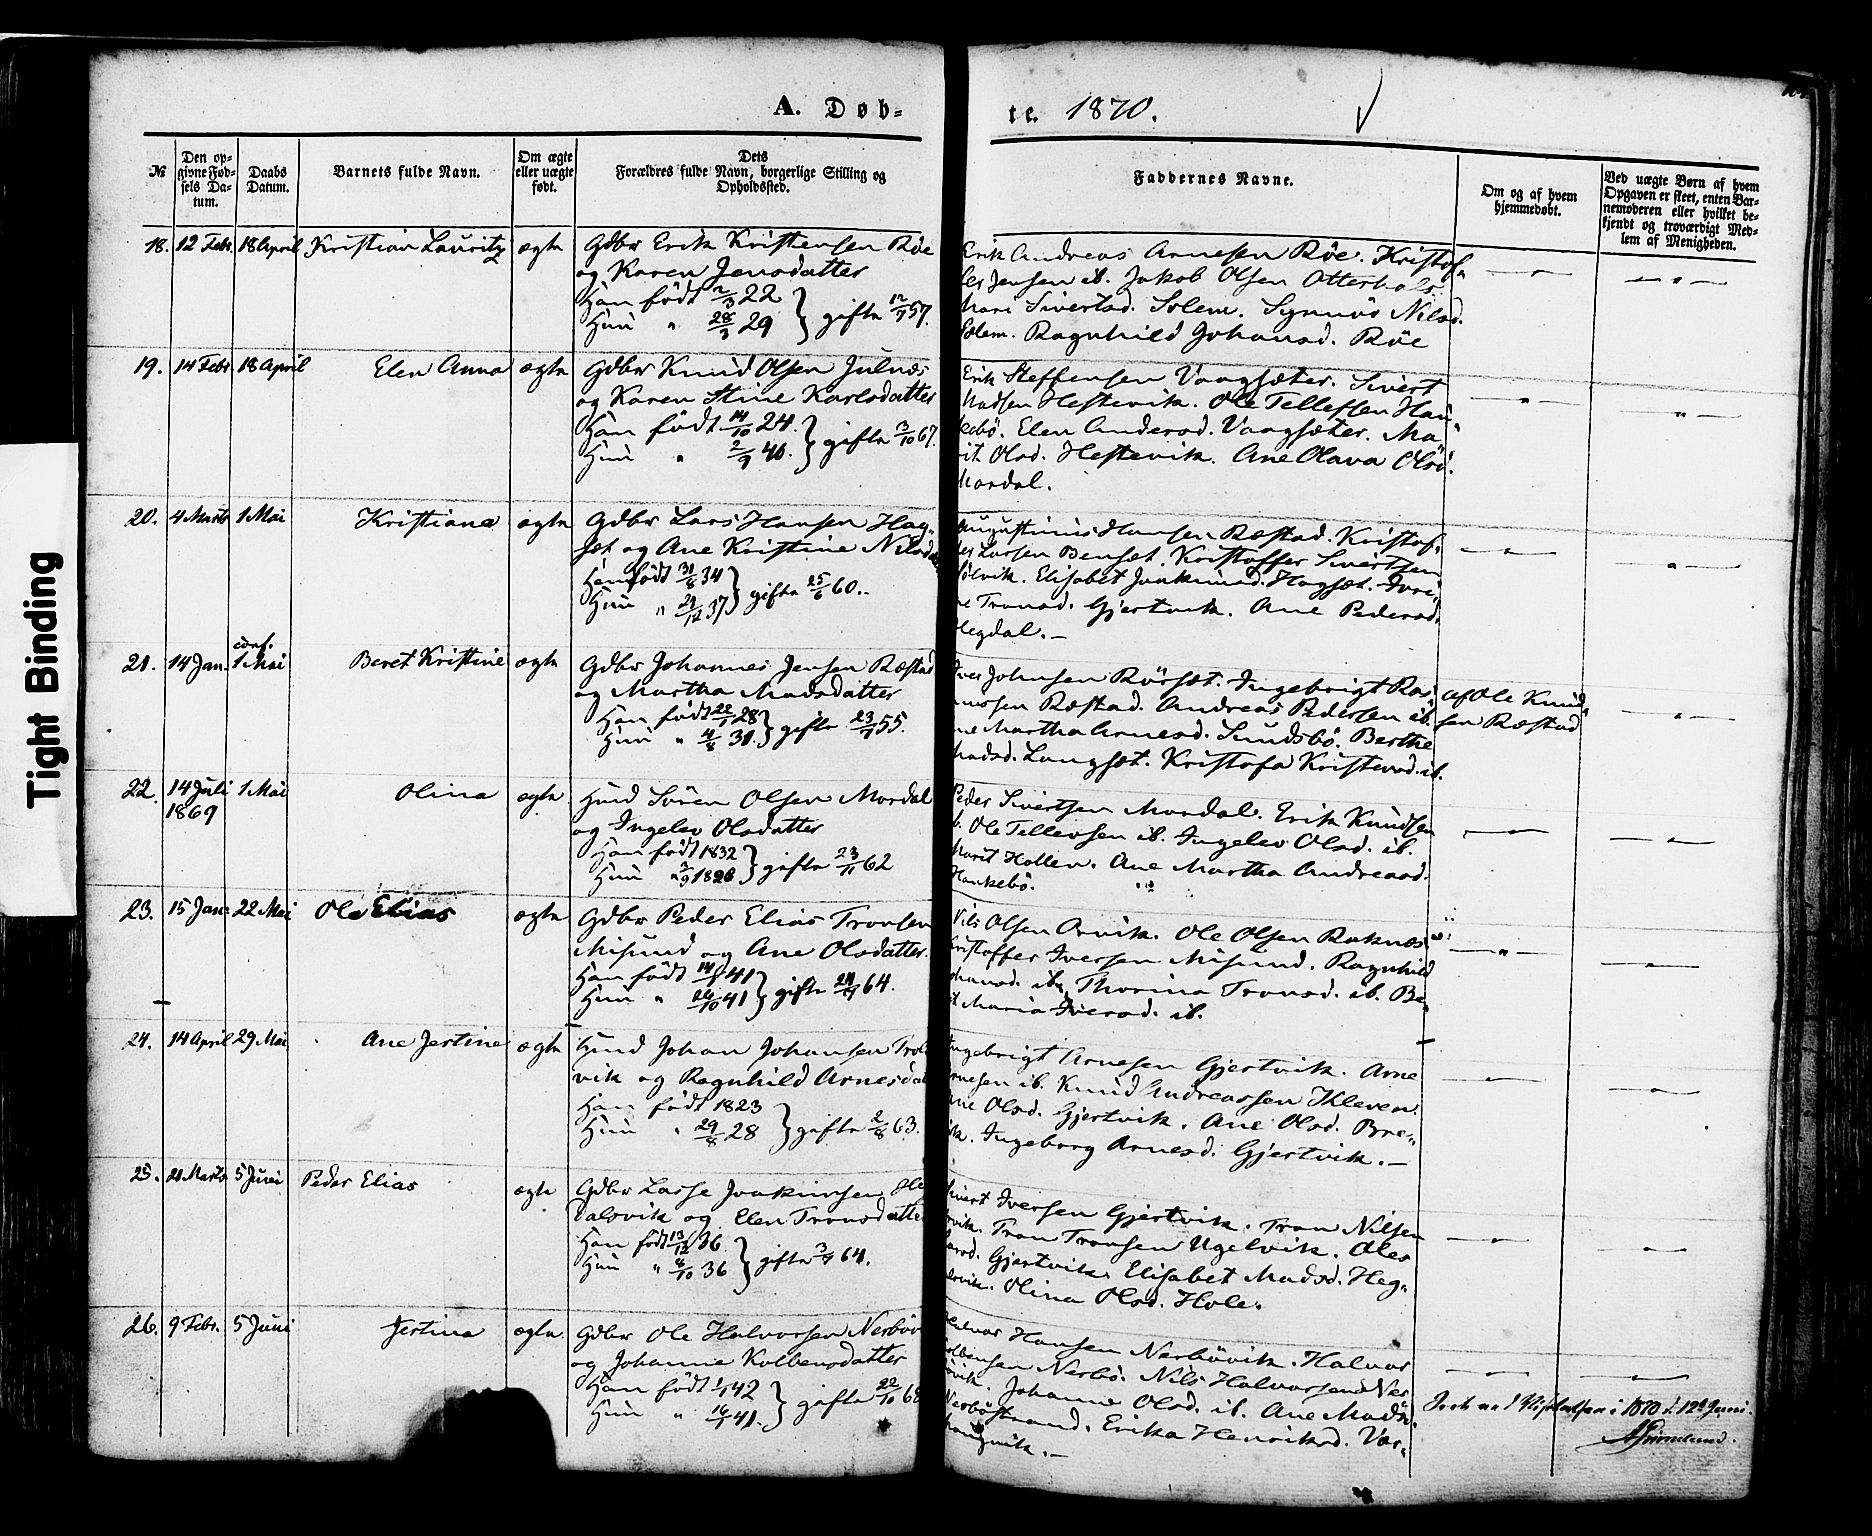 A. Døb=
te. 1870.
Tight Binding
№
Den opgivne Fødsels Datum.
Daabs Datum.
Barnets fulde Navn.
Om ægte eller uægte født.
Dets Forældres fulde Navn, borgerlige Stilling og Opholdssted.
Faddernes Navne.
Om og af hvem hjemmedøbt.
Ved uægte Børn af hvem Opgaven er skeet, enten Barnemoderen eller hvilket bekjendt og troværdigt Medlem af Menigheden.
18. 12 Febr. 18 April Kristian Lauritz ægte Gdbr Erik Kristensen Röe
og Karen Jensdatter
Han født 2/3 22
Hun " 28/3 29 } gifte 12/7 57.
Erik Andreas Arnesen Röe. Kristof
fer Jensen ib. Jakob Olsen Otterhals.
Mari Sivertsd. Solem. Synnös Nilsd.
Solem. Ragnhild Johansd. Röe
19. 14 Febr. 18 April Elen Anna ægte Gdbr Knud Olsen Julnæs
og Karen Stine Karlsdatter
Han født 14/10 24.
Hun " 2/9 40. } gifte 3/10 67.
Erik Steffensen Vaagsæter. Sivert
Madsen Hestevik. Ole Tellefsen Hau
kebö. Elen Andersd. Vaagsæter. Ma
rit Olsd. Hestevik. Ane Olava Olsd.
Mordal.
20. 4 Marts 1 Mai Kristiane ægte Gdbr Lars Hansen Hag
sæt og Ane Kristine Nilsd
Han født 31/8 34
Hun " 21/12 37 } gifte 25/6 60.
Augustinus Hansen Ræstad. Kristof
fer Larsen Benset. Kristoffer Sivertsen
Sölvik. Elisabet Joakimsd. Hagsæt. Ivri
ne Tronsd. Gjertvik. Ane Pedersd.
Hegdal.
21. 14 Jan. conf. 1 Mai Beret Kristine ægte Gdbr Johannes Jensen Ræstad
og Martha Madsdatter
Han født 22/1 28
Hun " 4/6 31. } gifte 23/7 55.
Iver Johnsen Rörset. Ingebrigt Ras
mussen Ræstad. Andreas Pedersen ib.
Ane Martha Arnesd. Sundsbö. Berthe
Madsd. Langsæt. Kristofa Kristensd. ib.
af Ole Knud
sen Ræstad
22. 14 Juli 1869 1 Mai Olina ægte Hmd Sören Olsen Mordal
og Ingelev Olsdatter
Han født 1832
Hun " 3/9 1826 } gifte 23/11 62
Peder Sivertsen Mordal. Erik Knudsen
ib. Ole Tellevsen ib. Ingelev Olsd. ib.
Marit Hollen. Ane Martha Andreasd.
Haukebö.
23. 15 Jan. 22 Mai Ole Elias ægte Gdbr Peder Elias Tronsen
Misund og Ane Olsdatter.
Han født 14/1 41
Hun " 26/10 41 } gifte 24/9 64.
Nils Olsen Orvik. Ole Olsen Raknæs
Kristoffer Iversen Misund. Ragnhild
Johansd. ib. Thorina Tronsd. ib. Be
rit Maria Iversd. ib.
24. 14 April 29 Mai Ane Jertine ægte Hmd Johan Johansen Trol
vik og Ragnhild Arnesdat
Han født 1823
Hun " 29/8 28 } gifte 2/8 63.
Ingebrigt Arnesen Gjertvik. Arne
Arnesen ib. Knud Andreassen Kleven.
Ane Olsd. Gjertvik. Ane Olsd. Bre
vik. Ingeborg Arnesd. Gjertvik.
25. 21 Marts 5 Juni Peder Elias ægte Gdbr Lasse Joakimsen He
dalsvik og Elen Tronsdatter
Han født 13/12 36.
Hun " 4/10 36 } gifte 3/7 64.
Sivert Iversen Gjertvik. Tron Nilsen
vik. Tron Tronsen Ugelvik. Olea
Gjertvik. Elisabet Madsd. Heg
Olina Olsd. Hole.
26. 9 Febr. 5 Juni Jertina ægte Gdbr Ole Halvorsen Nerböv
og Johanne Kolbensdatter
Han født 1/1 42
Hun " 16/1 41. } gifte 22/10 68
Halvor Hansen Nerbövik. Halvor
Kolbensen Nerbö. Nils Halvorsen Ner
bövik. Johanne Olsd. ib. Ane Madsd.
Nerböstrand. Erika Henriksd. Vor
1870 d. 12te Juni.